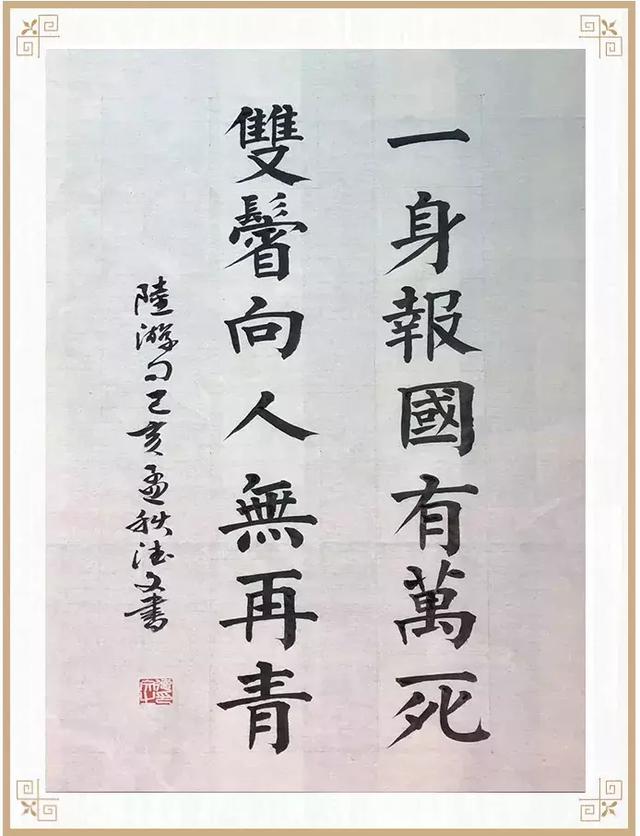 一身報國有萬死
雙鬢向人無再青
陸游句己亥孟秋德文書